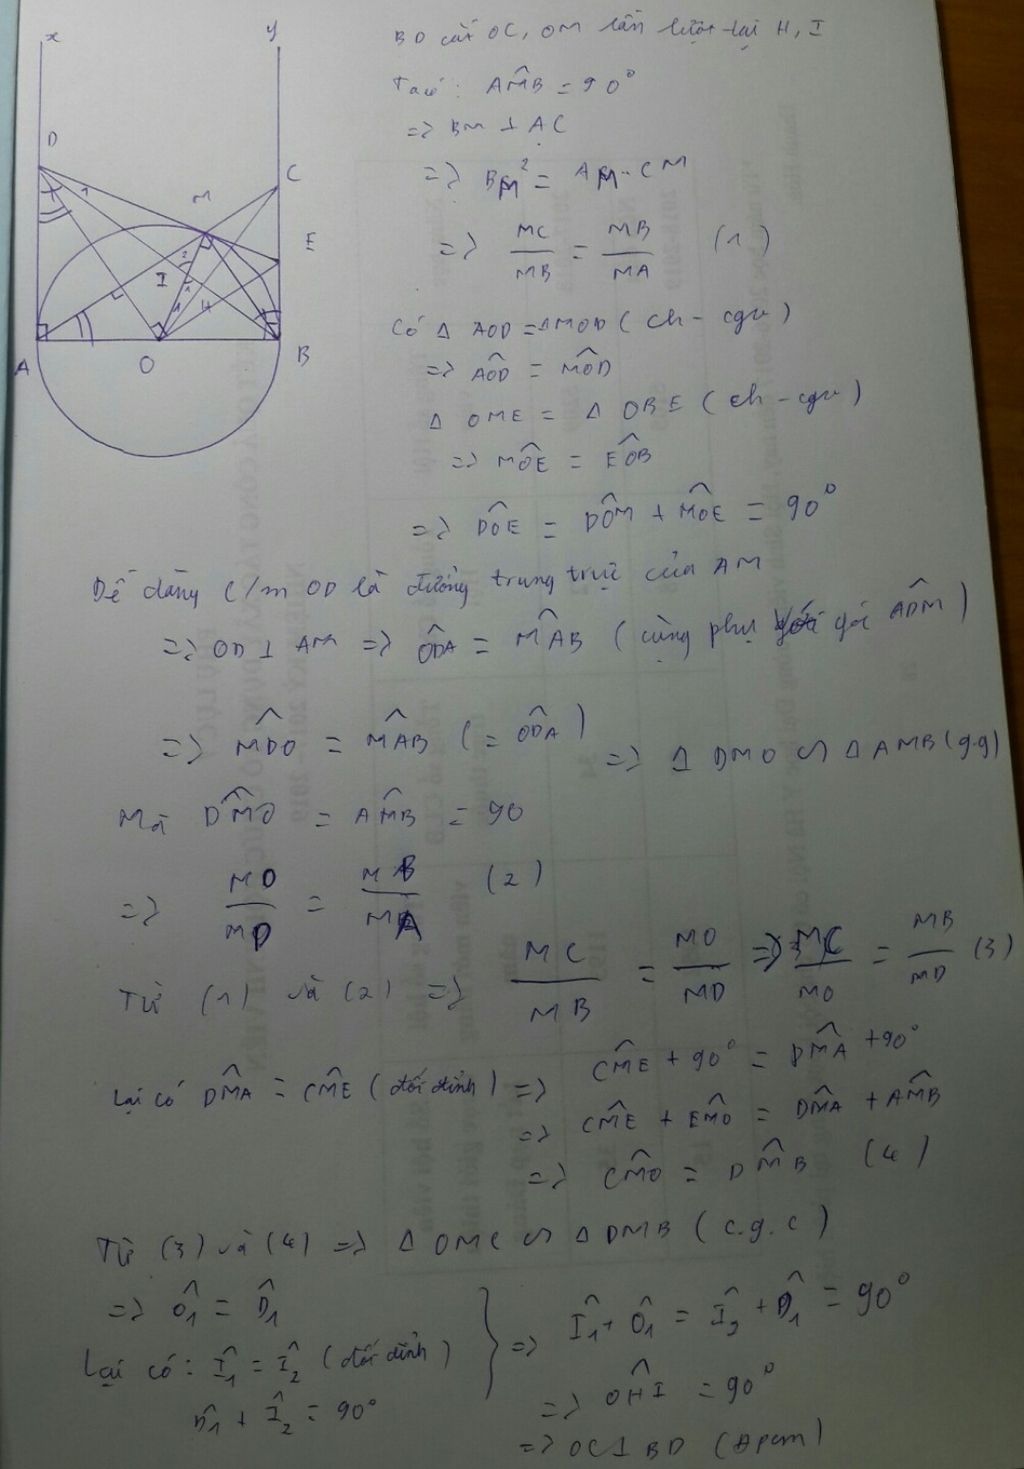 x
y
D
C
M
E
I
H
A
O
B
1
2
1
1
BD cắt OC, OM lần lượt tại H, I
Ta có: AM̂B = 90°
=> BM ⊥ AC
=> BM² = AM.CM
=> MC/MB = MB/MA (1)
Có Δ AOD = ΔMOD (ch - cgv)
=> AÔD = MÔD
Δ OME = Δ OBE (ch - cgv)
=> MÔE = EÔB
=> DÔE = DÔM + MÔE = 90°
Dễ dàng c/m OD là đường trung trực của AM
=> OD ⊥ AM => OD̂A = MÂB (cùng phụ góc AD̂M)
=> MD̂O = MÂB (= OD̂A)
=> Δ DMO ∽ Δ AMB (g.g)
Mà DM̂O = AM̂B = 90
=> MO/MD = MB/MA (2)
Từ (1) và (2) => MC/MB = MO/MD => MC/MO = MB/MD (3)
Lại có DM̂A = CM̂E (đối đỉnh) => CM̂E + 90° = DM̂A + 90°
=> CM̂E + EM̂O = DM̂A + AM̂B
=> CM̂O = DM̂B (4)
Từ (3) và (4) => Δ OMC ∽ Δ DMB (c.g.c)
=> Ô₁ = D̂₁
Lại có: Î₁ = Î₂ (đối đỉnh)
D̂₁ + Î₂ = 90°
=> Î₁ + Ô₁ = Î₂ + D̂₁ = 90°
=> OĤI = 90°
=> OC ⊥ BD (đpcm)